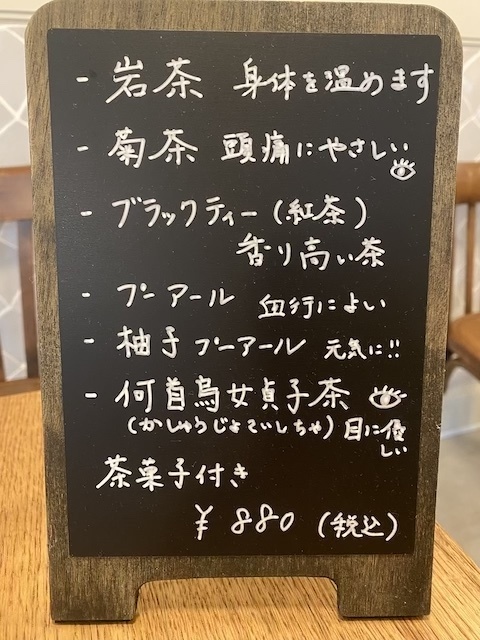 - 岩茶 身体を温めます
- 菊茶 頭痛にやさしい
- ブラックティー(紅茶)
香り高い茶
- プーアール 血行によい
- 柚子プーアール 元気に!!
- 何首烏女貞子茶
(かしゅうじょていしちゃ) 目に優しい
茶菓子付き
¥880 (税込)